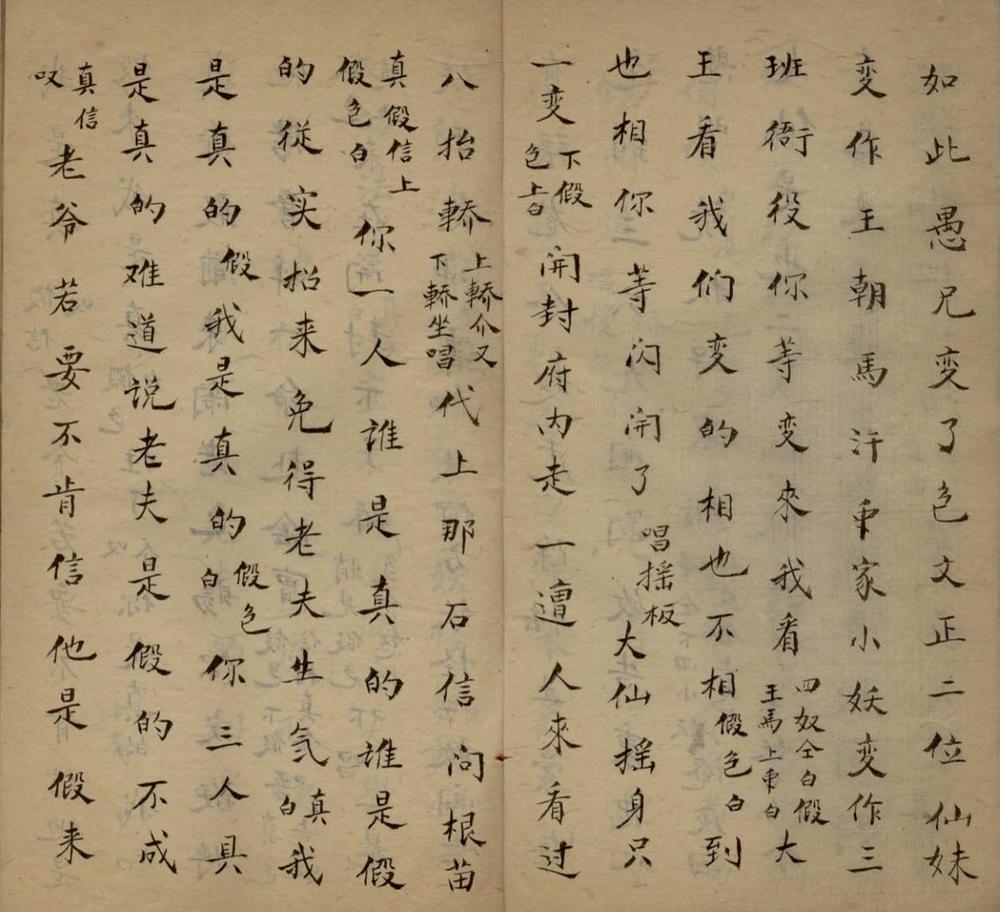 如此愚兄变了色文正二位仙妹
变作王朝馬汗帀家小妖变作三
班衙役你等变來我看四奴仝白假王馬上帀白大
王看我们变的相也不相假色白到
也相你等闪開了唱摇板大仙摇身只
一变下假色上白開封府内走一遭人來看过
八抬轿上轿介又下轿坐唱代上那石信问根苗
真假信上假色白你一人誰是真的誰是假
的従实招来免得老夫生气真白我
是真的假我是真的假色白你三人具
是真的难道说老夫是假的不成
真信叹老爷若要不肯信他是假来